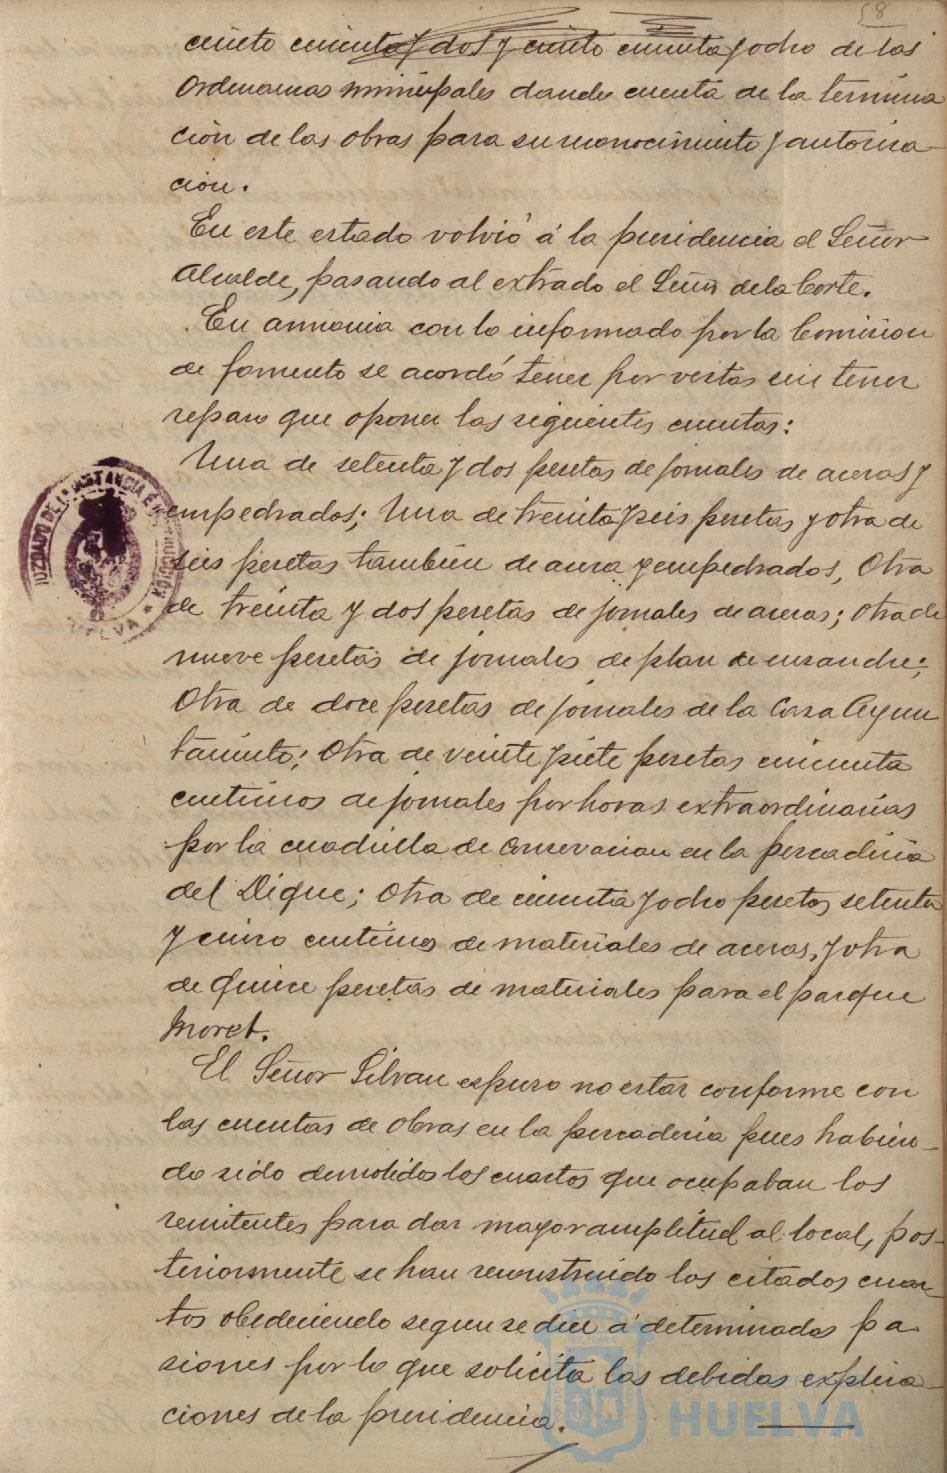 58
ciento cincuenta y dos y ciento cincuenta y ocho de las
Ordenanzas municipales dando cuenta de la termina
ción de las obras para su reconocimiento y autoriza-
ción.
En este estado volvió á la presidencia el Señor
Alcalde, pasando al extrado el Señor de la Corte.
En armonia con lo informado por la Comision
de fomento se acordó tener por vistas sin tener
reparo que oponer las siguientes cuentas:
Una de setenta y dos pesetas de jornales de aceras y
empedrados; Una de treinta y seis pesetas y otra de
seis pesetas también de acera y empedrados, Otra
de treinta y dos pesetas de jornales de aceras; otra de
nueve pesetas de jornales de plan de ensanche;
Otra de doce pesetas de jornales de la Casa Ayun
tamiento; Otra de veinte y siete pesetas cincuenta
centimos de jornales por horas extraordinarias
por la cuadrilla de conservacion en la pescaderia
del Dique; Otra de cincuenta y ocho pesetas setenta
y cinco centimos de materiales de aceras, y otra
de quince pesetas de materiales para el parque
Moret.
El Señor Silvan expuso no estar conforme con
las cuentas de obras en la pescaderia pues habien-
do sido demolidos los cuartos que ocupaban los
remitentes para dar mayor amplitud al local, pos-
teriormente se han reconstruido los citados cuar-
tos obedeciendo segun se dice á determinadas pa
siones por lo que solicita las debidas explica-
ciones de la presidencia.
JUZGADO DE 1ª INSTANCIA É INSTRUCCIÓN
HUELVA
HUELVA